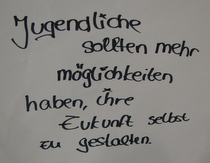 Jugendliche
sollten mehr
möglichkeiten
haben, ihre
Zukunft selbst
zu gestalten.